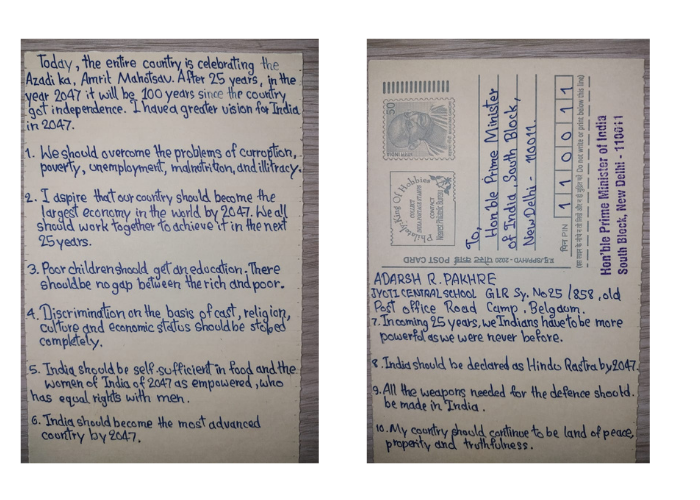 Today, the entire country is celebrating the
Azadi ka, Amrit Mahotsav. After 25 years, in the
year 2047 it will be 100 years since the country
got independence. I have a greater vision for India
in 2047.
1. We should overcome the problems of curroption,
poverty, unemployment, malnutrition, and illitracy.
2. I aspire that our country should become the
largest economy in the world by 2047. We all
should work together to achieve it in the next
25 years.
3. Poor children should get an education. There
should be no gap between the rich and poor.
4. Discrimination on the basis of cast, religion,
culture and economic status should be stoped
completely.
5. India should be self-sufficient in food and the
women of India of 2047 as empowered, who
has equal rights with men.
6. India should become the most advanced
country by 2047.
50
Philately King Of Hobbies
COLLECT
INDIA POSTAGE STAMPS
CONTACT
Nearest Philatelic Bureau
POST CARD
To,
Hon'ble Prime Minister
of India, South Block,
New Delhi - 110011.
पिन PIN
1 1 0 0 1 1
Do not write or print below this line
Hon'ble Prime Minister of India
South Block, New Delhi - 110011
ADARSH R. PAKHRE
JYOTI CENTRAL SCHOOL GLR Sy. No 25 / 858, old
Post office Road Camp. Belgaum.
7. Incoming 25 years, we Indians have to be more
powerful as we were never before.
8. India should be declared as Hindu Rastra by 2047.
9. All the weapons needed for the defence should
be made in India.
10. My country should continue to be land of peace,
properity and truthfulness.